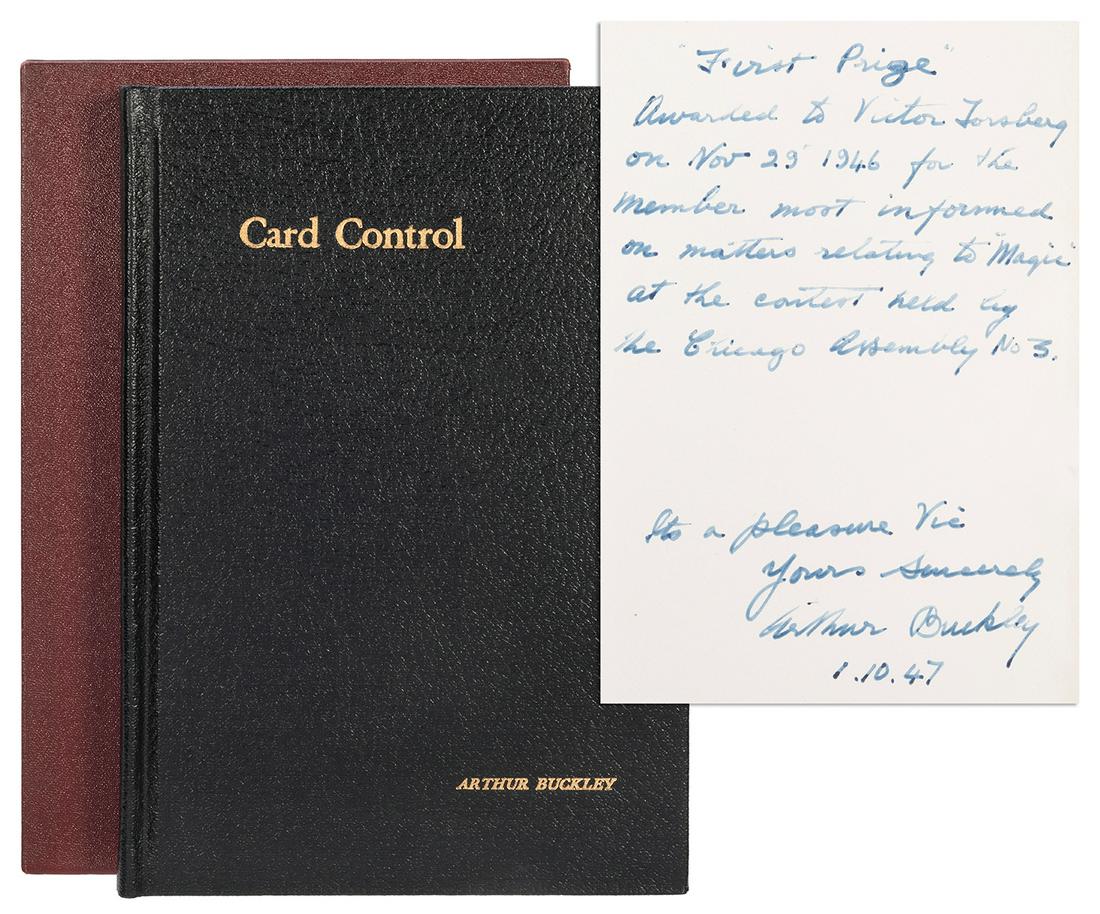 Card Control
ARTHUR BUCKLEY
"First Prize"
Awarded to Victor Torsberg
on Nov 29 1946 for the
member most informed
on matters relating to "Magic"
at the contest held by
the Chicago Assembly No 3.
Its a pleasure Vic
Yours Sincerely
Arthur Buckley
1.10.47